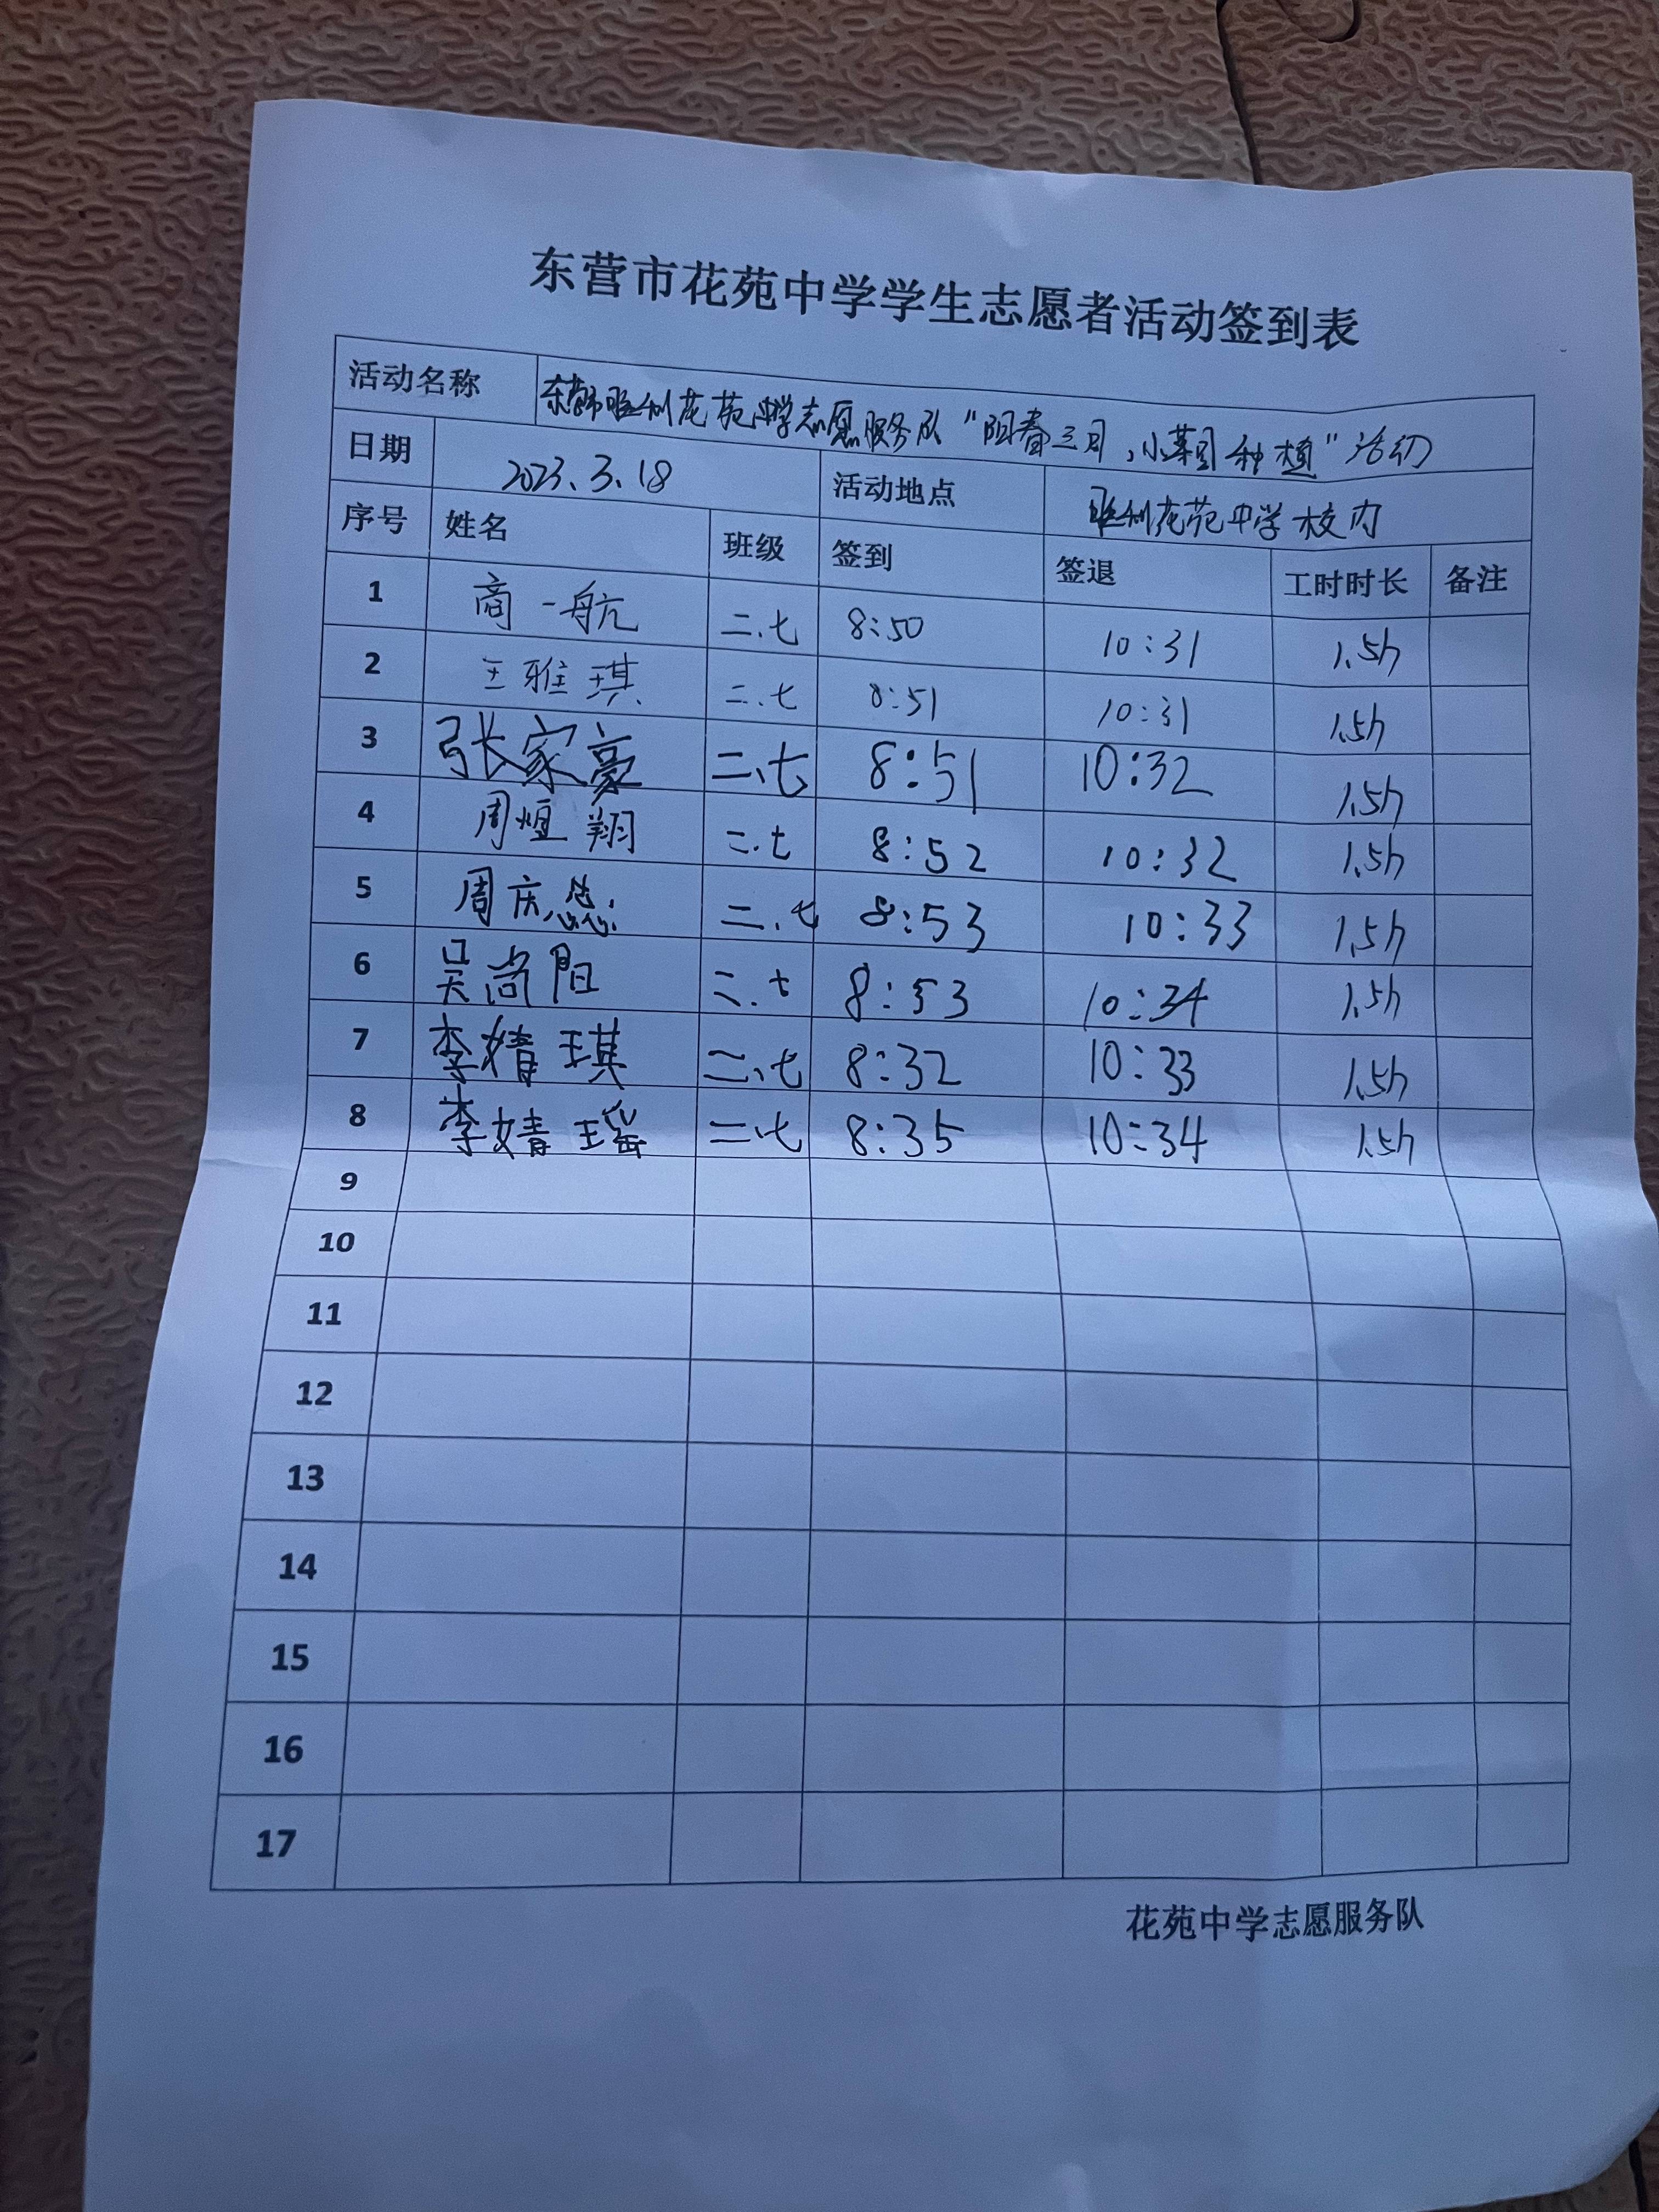 东营市花苑中学学生志愿者活动签到表
活动名称 东营市胜利花苑中学志愿服务队“阳春三月，小菜园种植”活动
日期 2023.3.18 活动地点 胜利花苑中学校内
序号 姓名 班级 签到 签退 工时时长 备注
1 商一航 二.七 8:50 10:31 1.5h
2 王雅琪 二.七 8:51 10:31 1.5h
3 张家豪 二、七 8:51 10:32 1.5h
4 周煊翔 二.七 8:52 10:32 1.5h
5 周庆 二.七 8:53 10:33 1.5h
6 吴尚阳 二.七 8:53 10:34 1.5h
7 李婧琪 二、七 8:32 10:33 1.5h
8 李婧瑶 二、七 8:35 10:34 1.5h
9
10
11
12
13
14
15
16
17
花苑中学志愿服务队